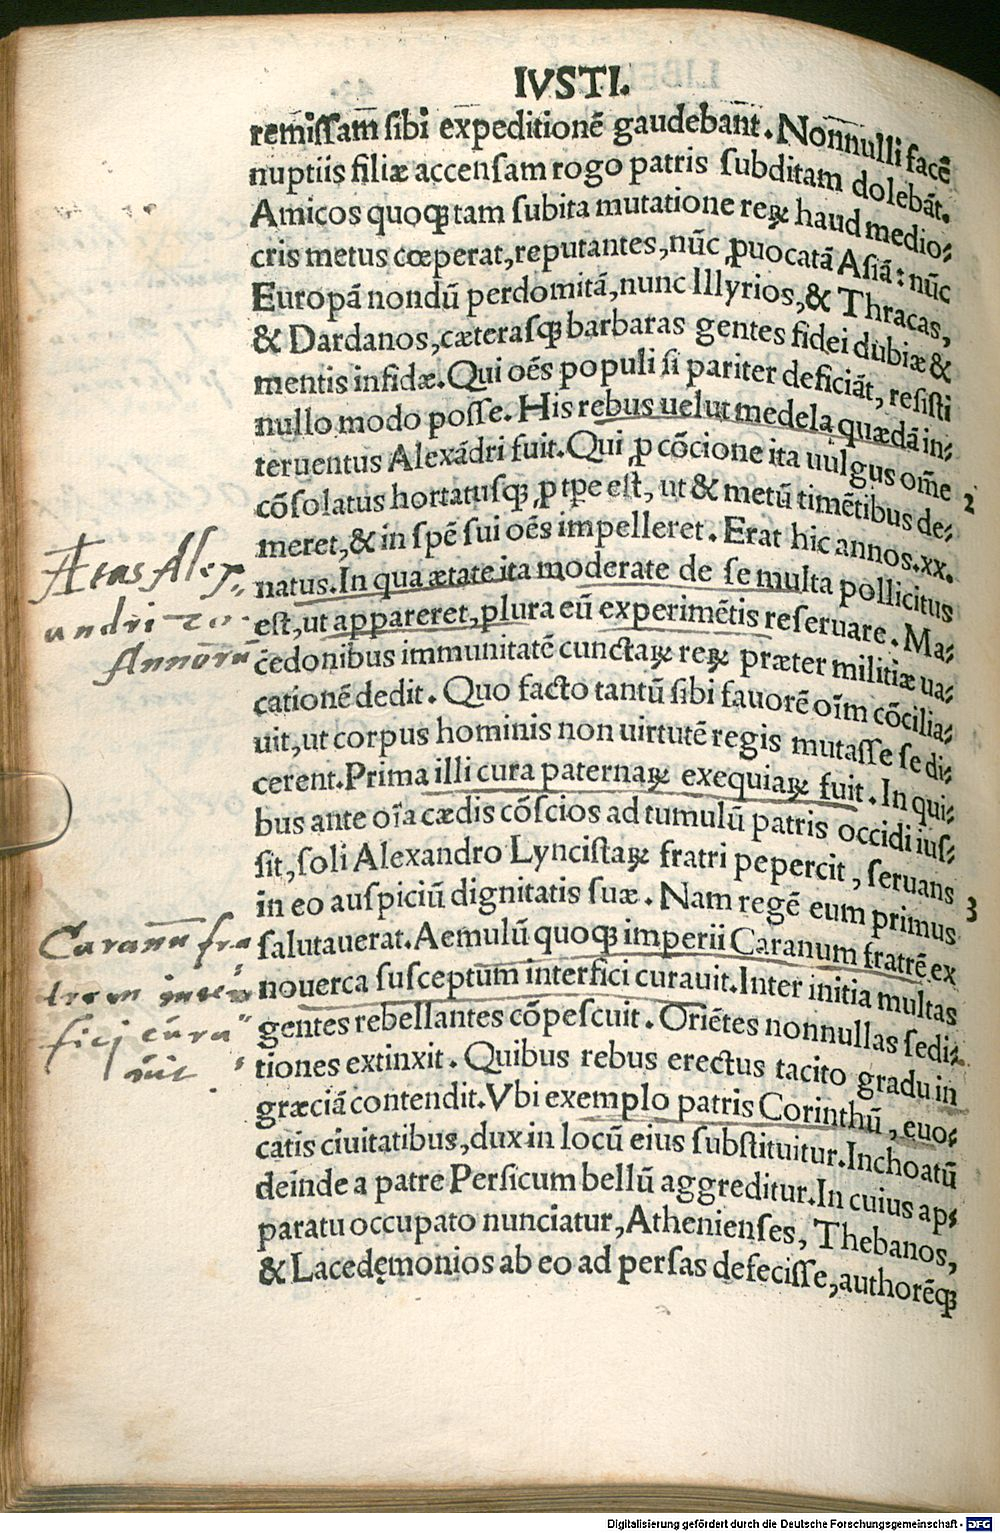 IVSTI.
remissam sibi expeditionē gaudebant. Nonnulli facē
nuptiis filiæ accensam rogo patris subditam dolebāt.
Amicos quoqꝫ tam subita mutatione reꝝ haud medio⸗
cris metus cœperat, reputantes, nūc ꝓuocatā Asiā: nūc
Europā nondū perdomitā, nunc Illyrios, & Thracas,
& Dardanos, cæterasqꝫ barbaras gentes fidei dubiæ &
mentis infidæ. Qui oēs populi si pariter deficiāt, resisti
nullo modo posse. His rebus uelut medela quædā in⸗
teruentus Alexādri fuit. Qui ꝓ cōcione ita uulgus om̄e
cōsolatus hortatusqꝫ, ꝓ tꝑe est, ut & metū timētibus de⸗
2
meret, & in spē sui oēs impelleret. Erat hic annos.xx.
natus. In qua ætate ita moderate de se multa pollicitus
est, ut appareret, plura eū experimētis reseruare. Ma⸗
cedonibus immunitatē cunctaꝝ reꝝ præter militiæ ua⸗
cationē dedit. Quo facto tantū sibi fauorē oīm cōcilia⸗
uit, ut corpus hominis non uirtutē regis mutasse se di⸗
cerent. Prima illi cura paternaꝝ exequiaꝝ fuit. In qui⸗
bus ante oīa cædis cōscios ad tumulū patris occidi ius⸗
sit, soli Alexandro Lyncistaꝝ fratri pepercit, seruans
in eo auspiciū dignitatis suæ. Nam regē eum primus
3
salutauerat. Aemulū quoqꝫ imperii Caranum fratrē ex
nouerca susceptum interfici curauit. Inter initia multas
gentes rebellantes cōpescuit. Oriētes nonnullas sedi⸗
tiones extinxit. Quibus rebus erectus tacito gradu in
græciā contendit. Vbi exemplo patris Corinthū, euo⸗
catis ciuitatibus, dux in locū eius substituitur. Inchoatū
deinde a patre Persicum bellū aggreditur. In cuius ap⸗
paratu occupato nunciatur, Athenienses, Thebanos,
& Lacedęmonios ab eo ad persas defecisse, authorēqꝫ
Ætas Alex⸗
andri 20
Annorū
Caranū fra
trem inter
fici cura
uit
Digitalisierung gefördert durch die Deutsche Forschungsgemeinschaft - DFG